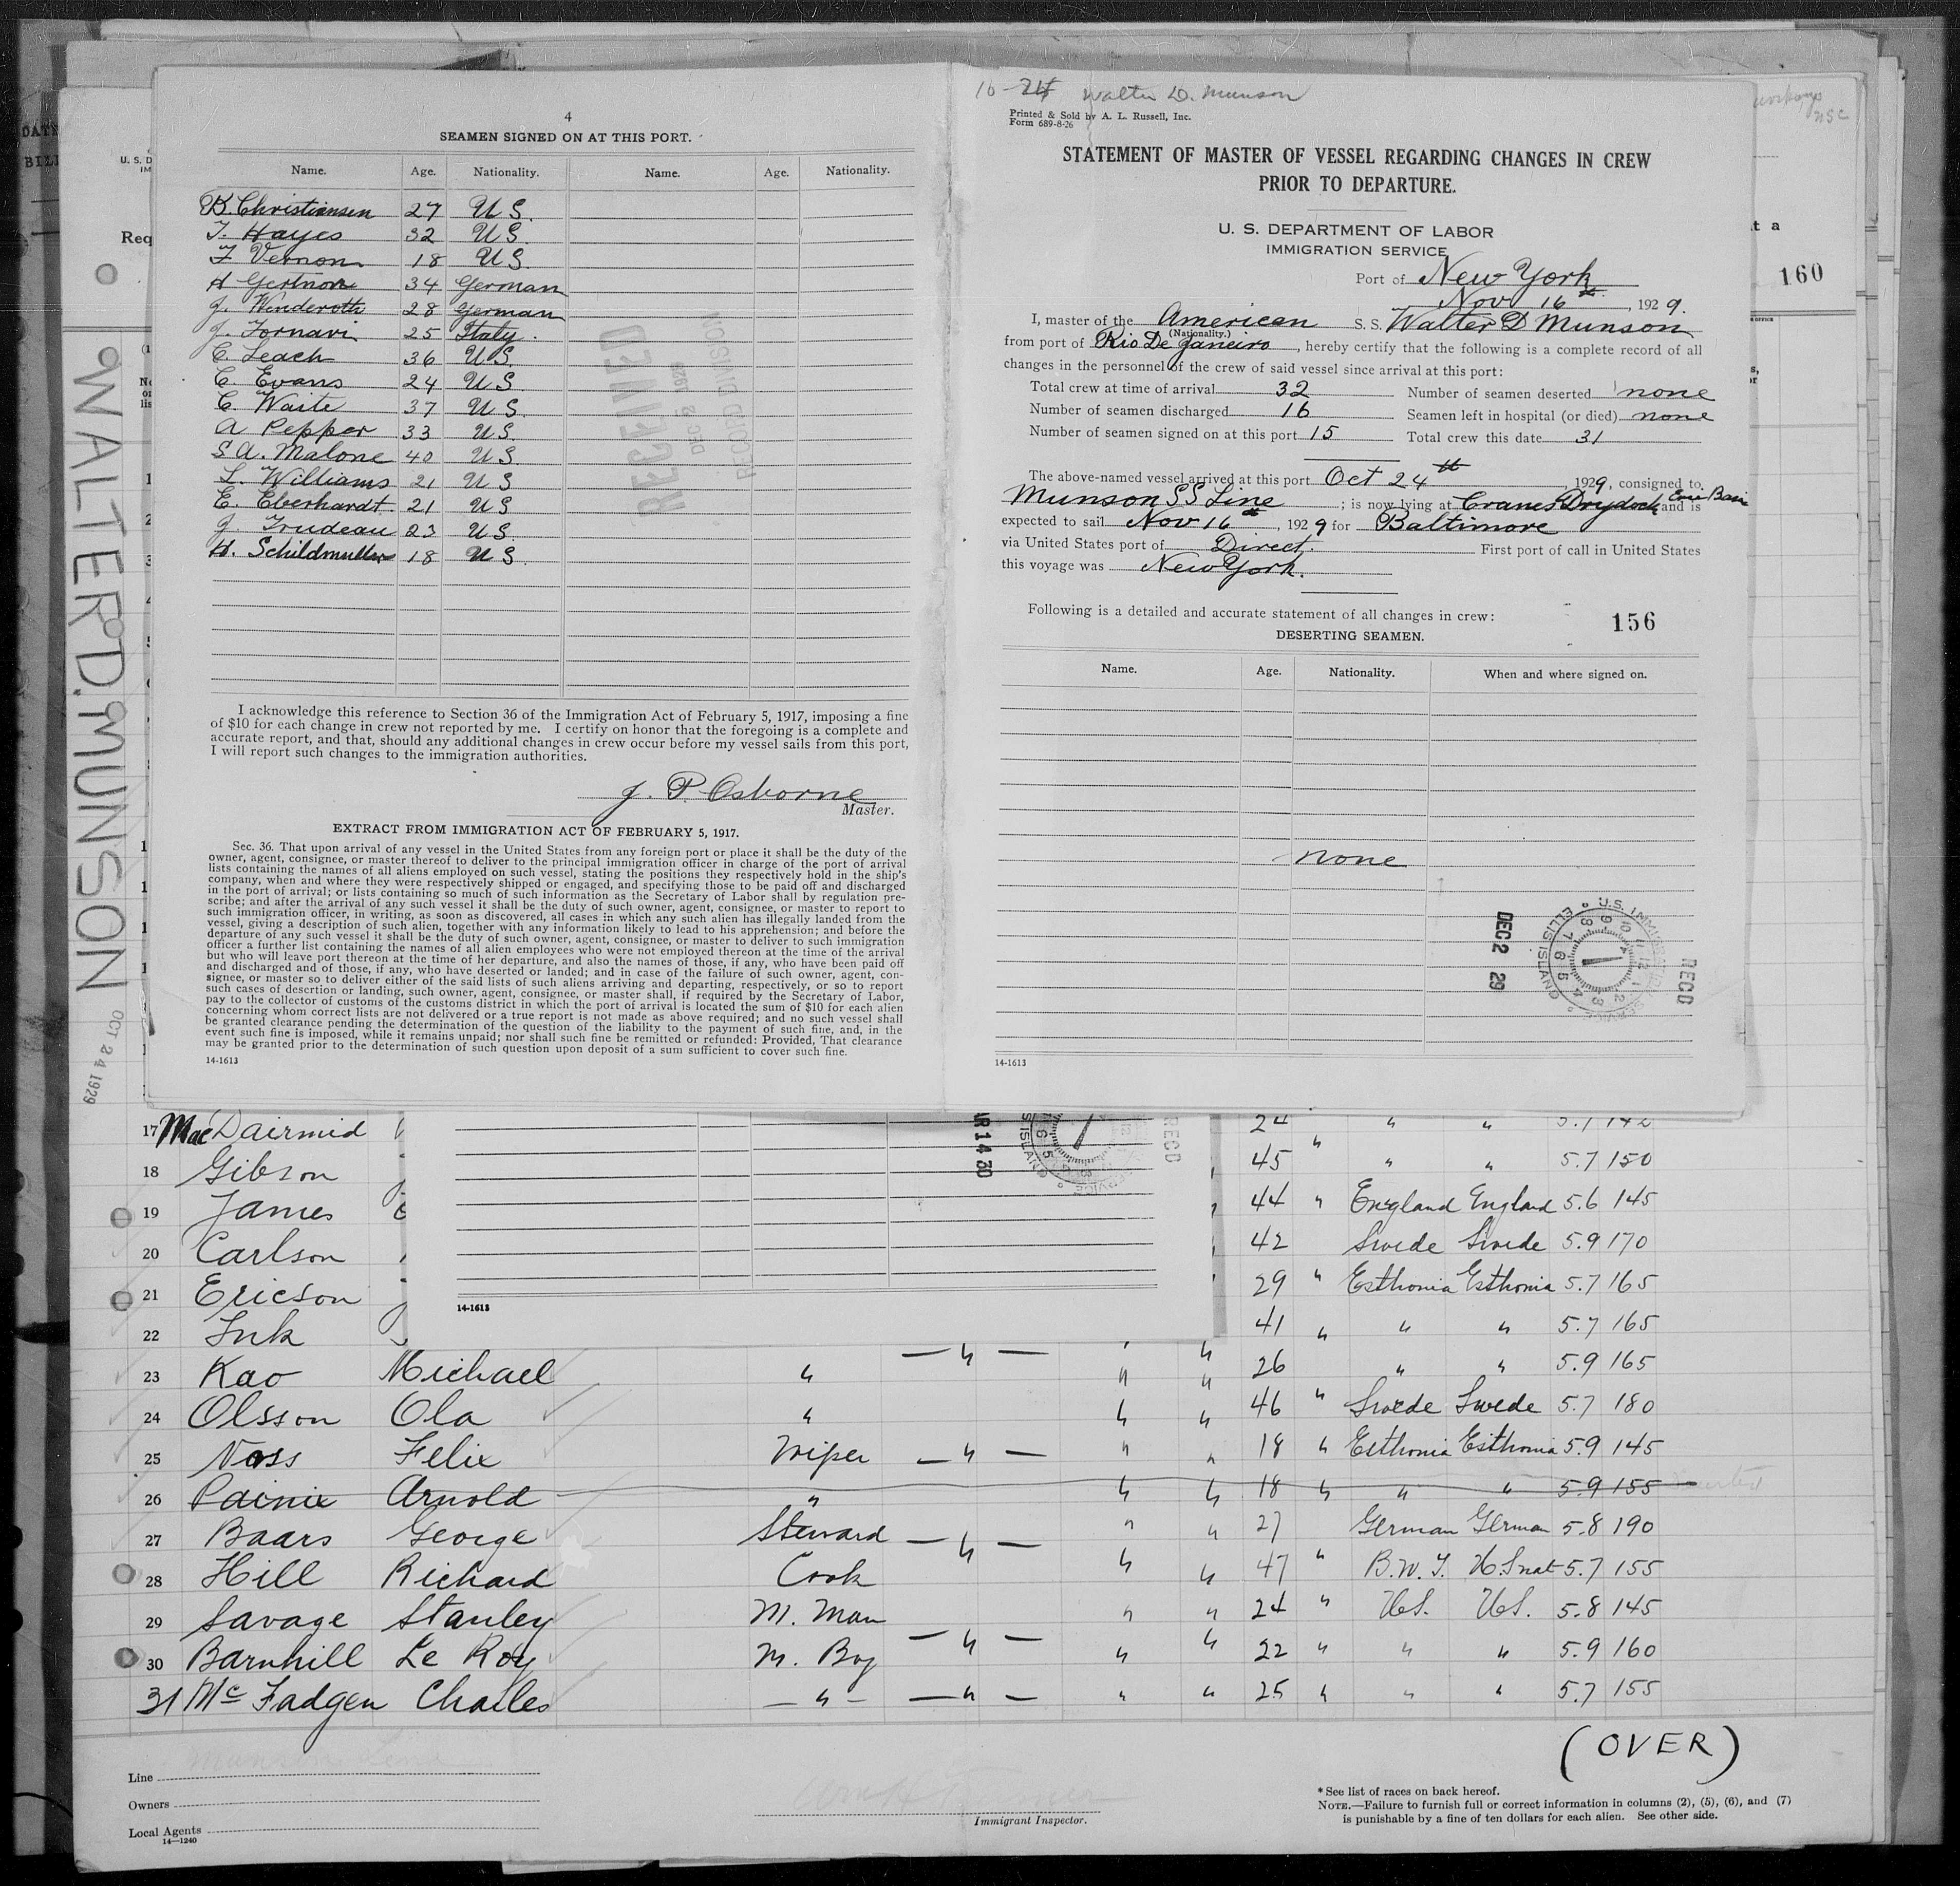 4
SEAMEN SIGNED ON AT THIS PORT.
Name. Age. Nationality. Name. Age. Nationality.
B. Christiansen 27 U S.
T. Hayes 32 U S.
F Vernon 18 U S.
H Gertnor 34 German
J. Wenderoth 28 German
J. Fornavi 25 Italy.
C. Leach 36 U S.
C. Evans 24 U S.
C. Waite 37 U S.
A Pepper 33 U S.
S A. Malone 40 U S.
L. Williams 21 U S
E. Eberhardt. 21 U S
J. Trudeau 23 U S.
H. Schildmuller 18 U S.
EXAMINED
DEC 3 1929
RECORD DIVISION
I acknowledge this reference to Section 36 of the Immigration Act of February 5, 1917, imposing a fine
of $10 for each change in crew not reported by me. I certify on honor that the foregoing is a complete and
accurate report, and that, should any additional changes in crew occur before my vessel sails from this port,
I will report such changes to the immigration authorities.
J. P. Osborne
Master.
EXTRACT FROM IMMIGRATION ACT OF FEBRUARY 5, 1917.
Sec. 36. That upon arrival of any vessel in the United States from any foreign port or place it shall be the duty of the
owner, agent, consignee, or master thereof to deliver to the principal immigration officer in charge of the port of arrival
lists containing the names of all aliens employed on such vessel, stating the positions they respectively hold in the ship's
company, when and where they were respectively shipped or engaged, and specifying those to be paid off and discharged
in the port of arrival; or lists containing so much of such information as the Secretary of Labor shall by regulation pre-
scribe; and after the arrival of any such vessel it shall be the duty of such owner, agent, consignee, or master to report to
such immigration officer, in writing, as soon as discovered, all cases in which any such alien has illegally landed from the
vessel, giving a description of such alien, together with any information likely to lead to his apprehension; and before the
departure of any such vessel it shall be the duty of such owner, agent, consignee, or master to deliver to such immigration
officer a further list containing the names of all alien employees who were not employed thereon at the time of the arrival
but who will leave port thereon at the time of her departure, and also the names of those, if any, who have been paid off
and discharged and of those, if any, who have deserted or landed; and in case of the failure of such owner, agent, con-
signee, or master so to deliver either of the said lists of such aliens arriving and departing, respectively, or so to report
such cases of desertion or landing, such owner, agent, consignee, or master shall, if required by the Secretary of Labor,
pay to the collector of customs of the customs district in which the port of arrival is located the sum of $10 for each alien
concerning whom correct lists are not delivered or a true report is not made as above required; and no such vessel shall
be granted clearance pending the determination of the question of the liability to the payment of such fine, and, in the
event such fine is imposed, while it remains unpaid; nor shall such fine be remitted or refunded: Provided, That clearance
may be granted prior to the determination of such question upon deposit of a sum sufficient to cover such fine.
14-1613
10-24 Walter D. Munson
Printed & Sold by A. L. Russell, Inc.
Form 689-8-26
STATEMENT OF MASTER OF VESSEL REGARDING CHANGES IN CREW
PRIOR TO DEPARTURE.
U. S. DEPARTMENT OF LABOR
IMMIGRATION SERVICE
Port of New York
Nov 16th, 1929.
I, master of the American S. S. Walter D Munson
(Nationality.)
from port of Rio De Janeiro, hereby certify that the following is a complete record of all
changes in the personnel of the crew of said vessel since arrival at this port:
Total crew at time of arrival 32 Number of seamen deserted none
Number of seamen discharged 16 Seamen left in hospital (or died) none
Number of seamen signed on at this port 15 Total crew this date 31
The above-named vessel arrived at this port Oct 24th, 1929, consigned to
Munson S S Line; is now lying at Cranes Drydock Erie Basin and is
expected to sail Nov 16th, 1929 for Baltimore
via United States port of Direct. First port of call in United States
this voyage was New York.
Following is a detailed and accurate statement of all changes in crew:
156
DESERTING SEAMEN.
Name. Age. Nationality. When and where signed on.
none
DEC 2 29
U.S. IMMIGRATION SERVICE ELLIS ISLAND
RECD
14-1613
160
WALTER D. MUNSON OCT 24 1929
17 MacDairmid 24 " " 5.7 142
18 Gibson 45 " " " 5.7 150
19 James 44 " England England 5.6 145
20 Carlson 42 Swede Swede 5.9 170
21 Ericson 29 " Esthonia Esthonia 5.7 165
22 Ink 41 " " " 5.7 165
23 Kao Michael " — " — " " 26 " " 5.9 165
24 Olsson Ola " " " 46 " Swede Swede 5.7 180
25 Noss Felix Wiper — " — " " 18 " Esthonia Esthonia 5.9 145
26 Painie Arnold " " " 18 " " " 5.9 155
27 Baars George Steward — " — " " 27 German German 5.8 190
28 Hill Richard Cook " " 47 " B.W.I. U.S nat 5.7 155
29 Savage Stanley M. Man " " 24 " U.S. U.S. 5.8 145
30 Barnhill Le Roy M. Boy — " — " " 22 " " " 5.9 160
31 McFadgen Charles — " — — " — " " 25 " " " 5.7 155
MAR 14 30
RECD
14-1613
(OVER)
Line Munson Line
Owners
Local Agents
14—1240
Immigrant Inspector.
* See list of races on back hereof.
NOTE.—Failure to furnish full or correct information in columns (2), (5), (6), and (7)
is punishable by a fine of ten dollars for each alien. See other side.